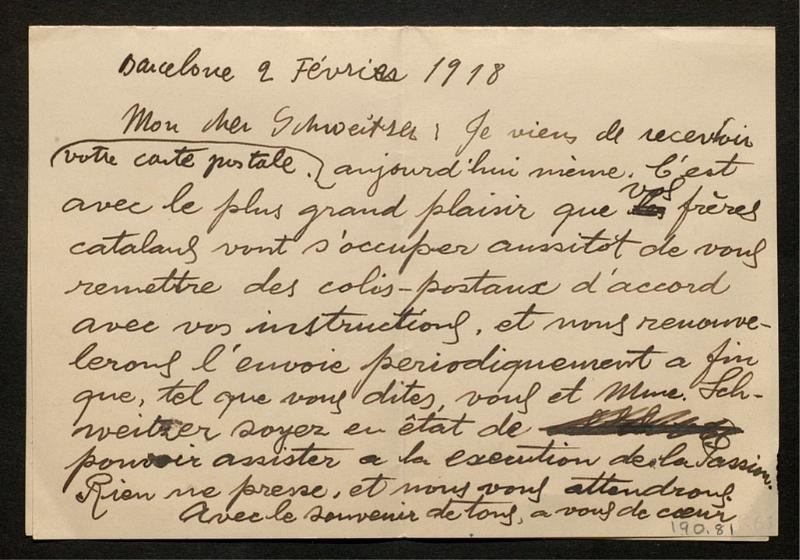 Barcelone 2 Février 1918
Mon cher Schweitzer : Je viens de recevoir
votre carte postale. aujourd'hui même. C'est
avec le plus grand plaisir que vos frères
catalans vont s'occuper aussitôt de vous
remettre des colis-postaux d'accord
avec vos instructions, et nous renouve-
lerons l'envoie periodiquement a fin
que, tel que vous dites, vous et Mme. Sch-
weitzer soyez en état de
pouvoir assister a la execution de la Passion.
Rien ne presse, et nous vous attendrons.
Avec le souvenir de tous, a vous de cœur
190.81